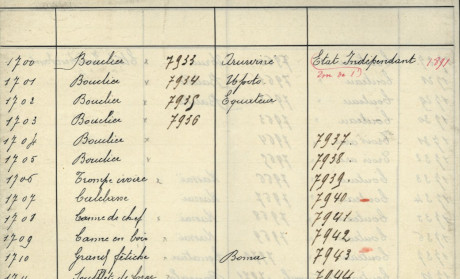 1700 Bouclier x 7933 Aruwimi Etat Indépendant 1897
Don de
1701 Bouclier x 7934 Upoto
1702 Bouclier x 7935 Equateur
1703 Bouclier x 7936
1704 Bouclier 7937
1705 Bouclier 7938
1706 Trompe ivoire 7939
1707 7940
1708 Canne de chef 7941
1709 Canne en bois 7942
1710 Grand fétiche Boma 7943
7944